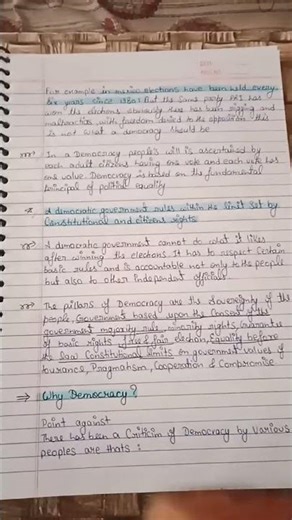 For example in mexico elections have been held every
Six years since 1930. But the Same party PRI has
won the elections obviously there has been rigging and
malpractice, with freedom denied to the opposition. This
is not what a democracy should be
In a Democracy people's will is ascertained by
each adult citizens having one vote and each vote has
one value. Democracy is based on the fundamental
principal of political equality
A democratic government rules within the limit set by
Constitutional and citizens rights
A democratic government cannot do what it likes
after winning the elections. It has to respect Certain
basic rules and is accountable not only to the people
but also to other independent officials
The pillars of Democracy are the Sovereignty of the
people, Government based upon the Consent of the
government majority rule, minority rights, Guarantee
of basic rights, free & fair election, Equality before
the law Constitutional limits on government values of
tourance, Pragmatism, Cooperation & Compromise
⇒ Why Democracy?
Point against
There has been a Criticism of Democracy by Various
peoples are thats :